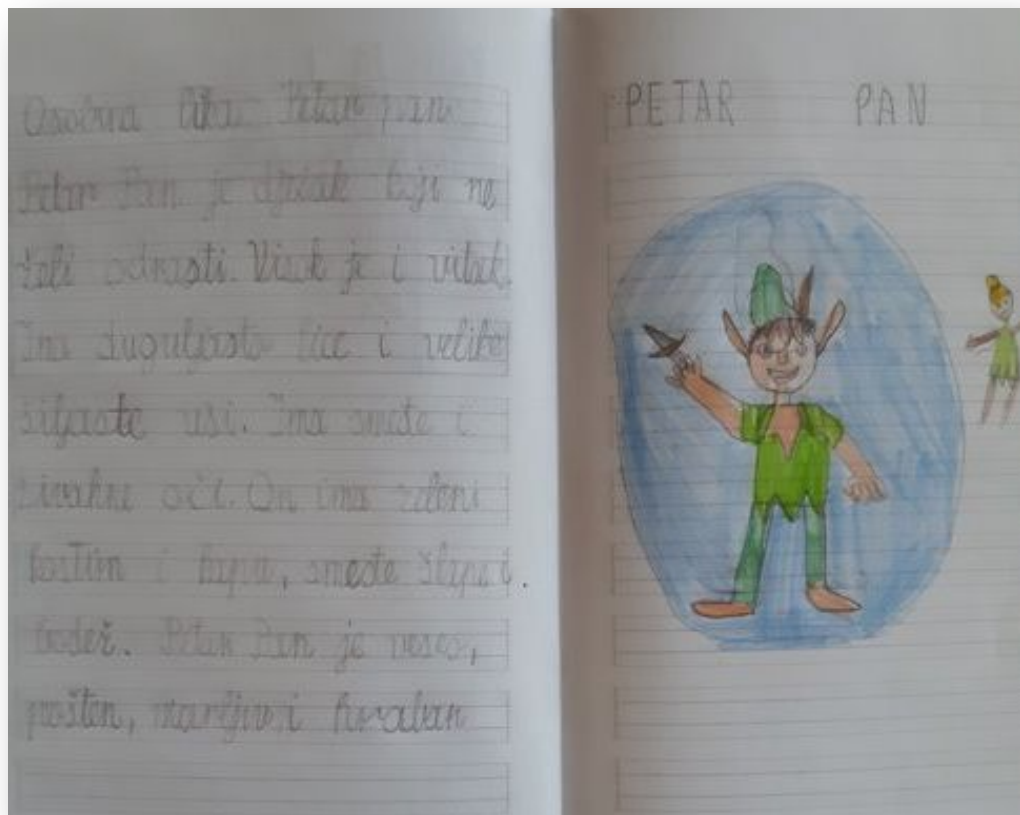 Osobine lika Petar pana
Petar Pan je dječak koji ne
želi odrasti. Visok je i vitak.
Ima duguljasto lice i velike
šiljaste uši. Ima smeđe i
živahne oči. On ima zeleni
kostim i kapu, smeđe i
bodež. Petar Pan je veseo,
pošten, marljiv i
PETAR PAN